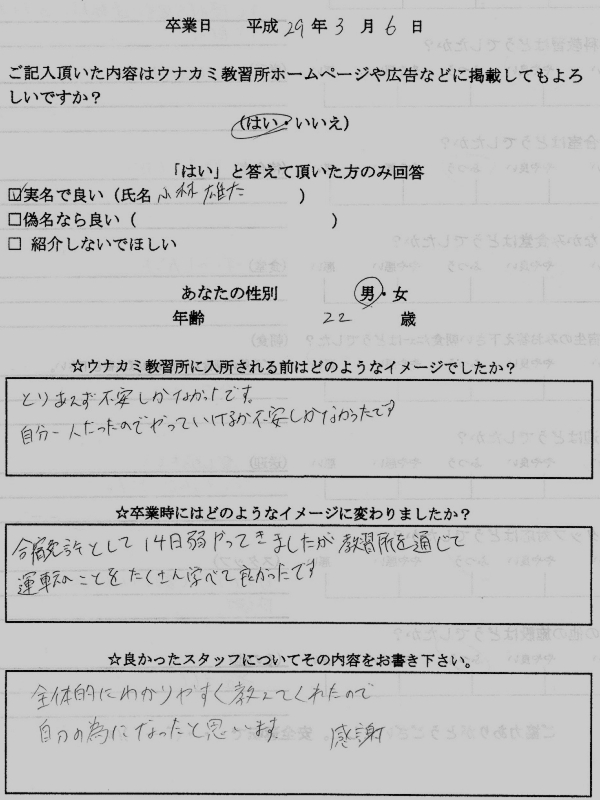 卒業日 平成 29 年 3 月 6 日
ご記入頂いた内容はウナカミ教習所ホームページや広告などに掲載してもよろ
しいですか？
(はい・いいえ)
「はい」と答えて頂いた方のみ回答
☑実名で良い（氏名 小林 雄た ）
□偽名なら良い（ ）
□ 紹介しないでほしい
あなたの性別 男・女
年齢 22 歳
☆ウナカミ教習所に入所される前はどのようなイメージでしたか？
とりあえず不安しかなかったです。
自分一人だったのでやっていけるか不安しかなかったです
☆卒業時にはどのようなイメージに変わりましたか？
合宿免許として14日弱やってきましたが教習所を通じて
運転のことをたくさん学べて良かったです
☆良かったスタッフについてその内容をお書き下さい。
全体的にわかりやすく教えてくれたので
自分の為になったと思います。 感謝